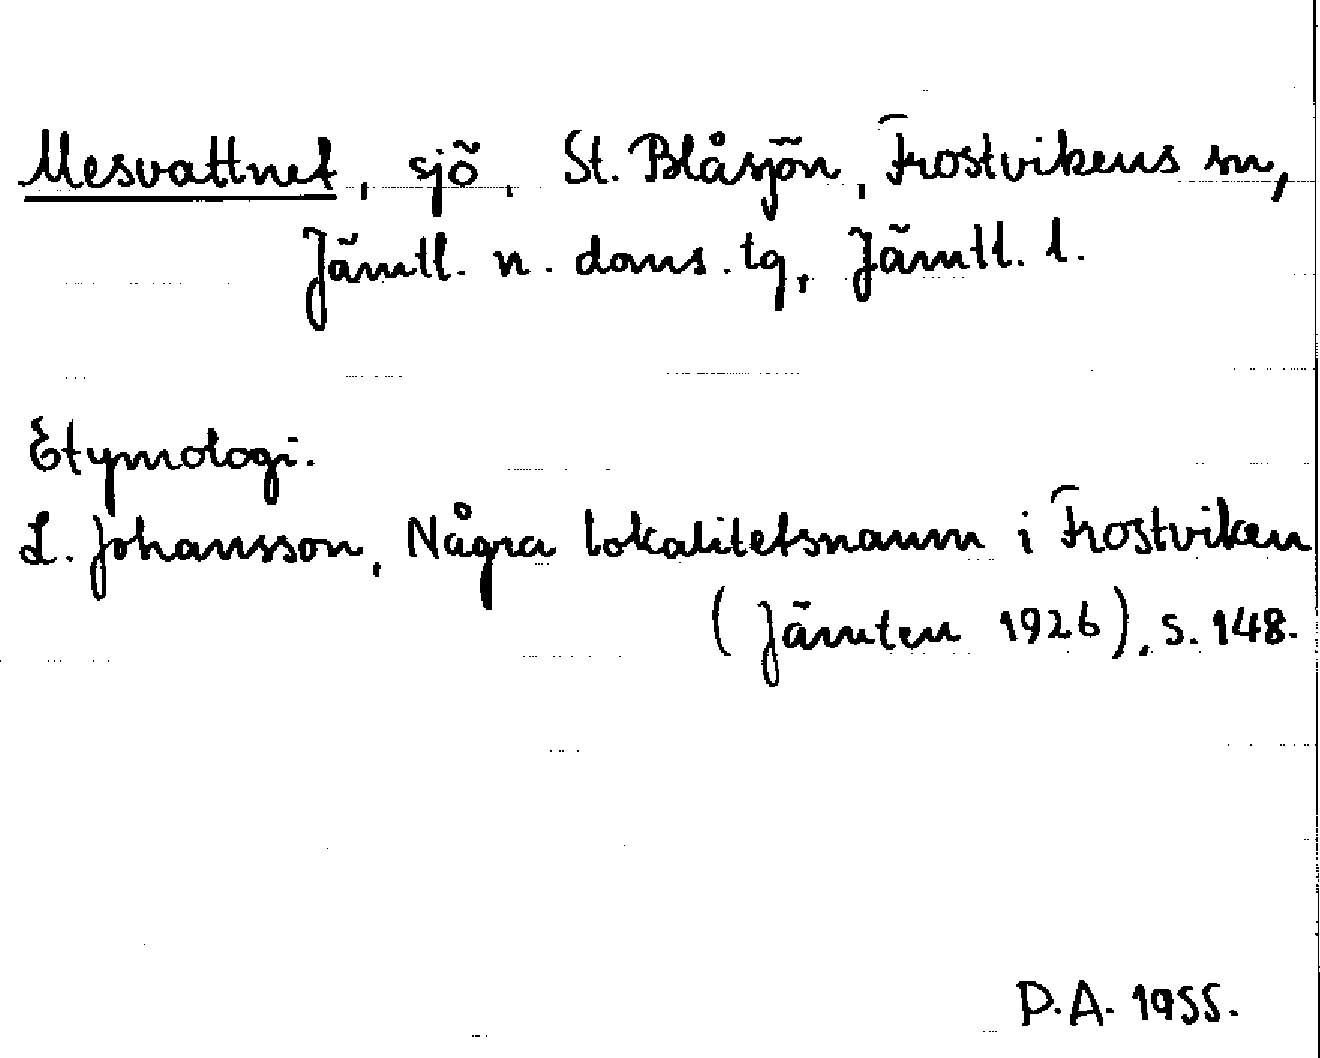 Mesvattnet, sjö, St. Blåsjön, Frostvikens sn,
Jämtl. n. doms. tg, Jämtl. l.
Etymologi.
L. Johansson, Några lokalitetsnamn i Frostviken
(Jämten 1926), s. 148.
D.A. 1955.